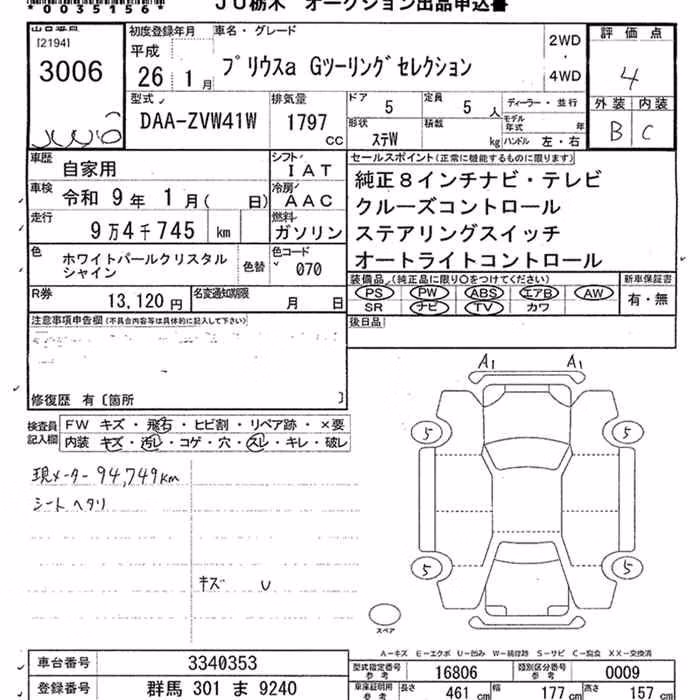 *0035156*
JU栃木 オークション出品申込書
出品番号
[2194]
3006
初度登録年月
平成
26 1月
車名・グレード
プリウスa Gツーリングセレクション
2WD
・
4WD
評価点
4
外装 内装
B C
型式
DAA-ZVW41W
排気量
1797
cc
ドア
5
定員
5 人
形状
ステW
積載
kg
ディーラー・並行
モデル年式 年
ハンドル 左・右
車歴
自家用
シフト
IAT
車検
令和 9年 1月( 日)
冷房
AAC
走行
9万4千745 km
燃料
ガソリン
色
ホワイトパールクリスタル
シャイン
色替
色コード
070
R券
13,120円
名変通知期限
月 日
セールスポイント(正常に機能するものに限ります)
純正8インチナビ・テレビ
クルーズコントロール
ステアリングスイッチ
オートライトコントロール
装備品(純正品に限り〇をつけてください)
PS PW ABS エアB AW
SR ナビ TV カワ
新車保証書
有・無
後日品
注意事項申告欄(不具合内容等は具体的に記入して下さい)
修復歴 有〔箇所 〕
検査員
記入欄
FW キズ・飛石・ヒビ割・リペア跡・×要
内装 キズ・汚レ・コゲ・穴・スレ・キレ・破レ
現メーター 94,749km
シート ヘタリ
キズ U
A1 A1
5 5
5 5
スペア
A―キズ E―エクボ U―凹み W―補修跡 S―サビ C―腐食 XX―交換済
車台番号
3340353
登録番号
群馬 301 ま 9240
型式指定番号
参考
16806
類別区分番号
参考
0009
車庫証明用
参考
長さ
461 cm
幅
177 cm
高さ
157 cm